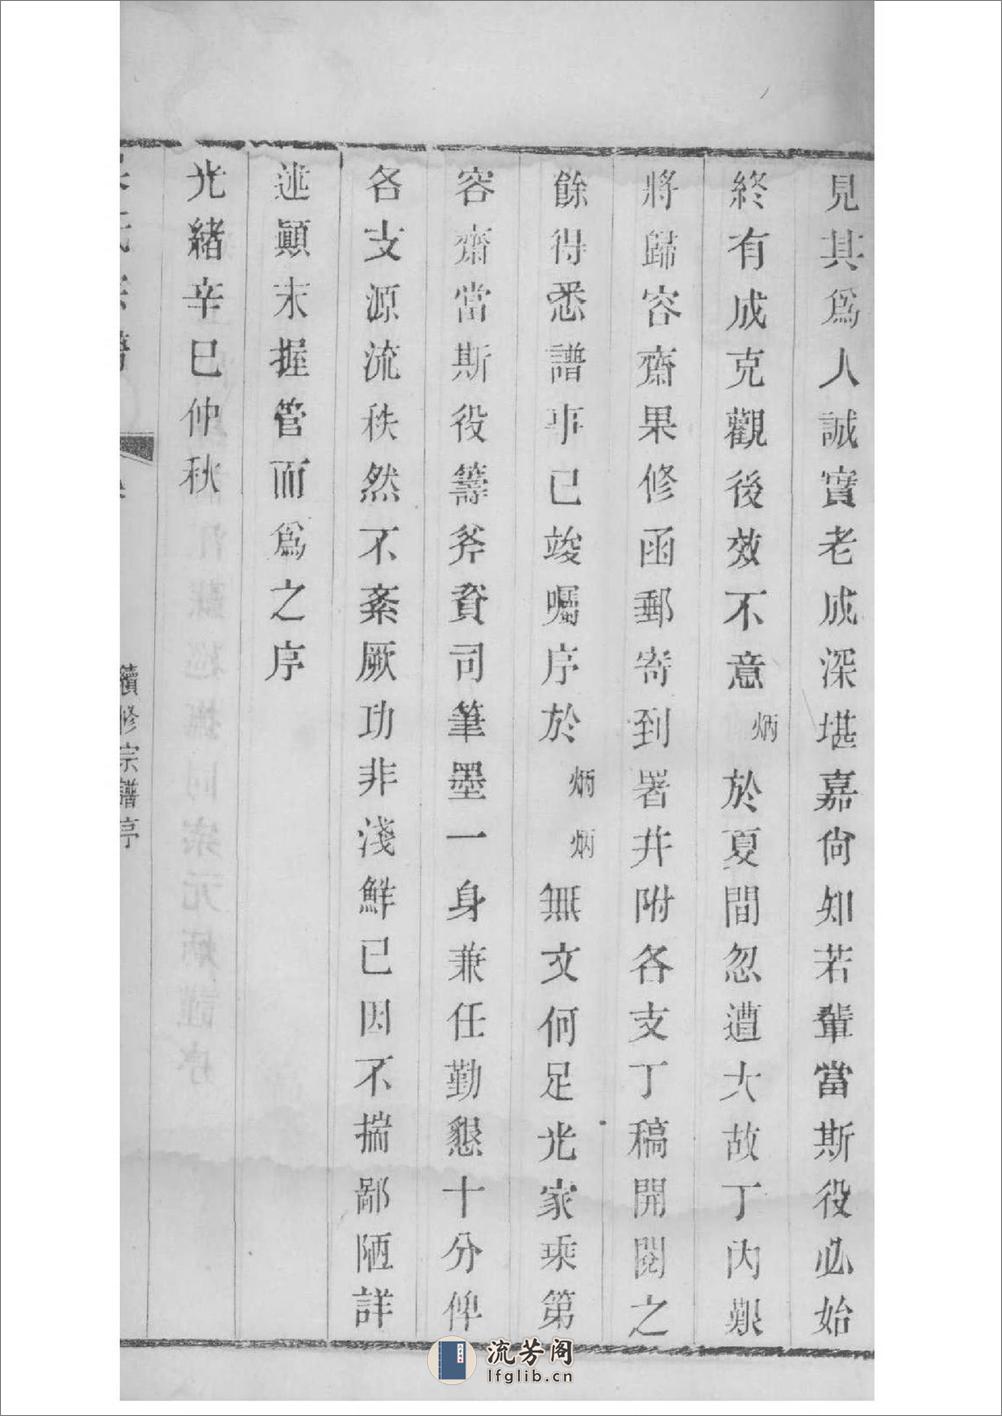 見其爲人誠實老成深堪嘉尙知若輩當斯役必始
終有成克觀後效不意炳於夏間忽遭大故丁內艱
將歸容齋果修函郵寄到署并附各支丁稿開閱之
餘得悉譜事已竣囑序於炳炳無文何足光家乘第
容齋當斯役籌斧資司筆墨一身兼任勤懇十分俾
各支源流秩然不紊厥功非淺鮮已因不揣鄙陋詳
述顚末握管而爲之序
光緒辛巳仲秋
續修宗譜序
流芳阁
lfglib.cn